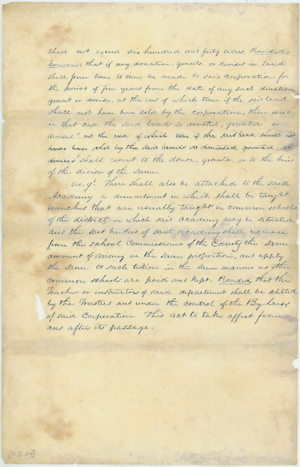 shall not exceed six hundred and forty acres. Provided
however; that if any donation, grants or devises in land
shall from time to time be made to said corporation for
the period of five years from the date of any such donation
grant or devise, at the end of which time if the said land
shall not have been sold by the corporation, then and
in that case the said land so donated, granted or
devised
shall revert to the donor, grantor, or to the heirs
of the devisor of the same.
There shall also be attached to the said
Academy a department in which shall be taught
branches that are usually taught in common schools
of the district in which said academy may be situated
and the said trustees of said academy shall receive
from the school Commissioner of the County the same
amount of money in the same proportion, and apply
the same to such tuition in the same manner as other
common schools are paid and kept. Provided that the
teacher or instructors of said department shall be elected
by the Trustees and under the control of the By-Laws
of said Corporation. This act to take effect from
and after its passage.